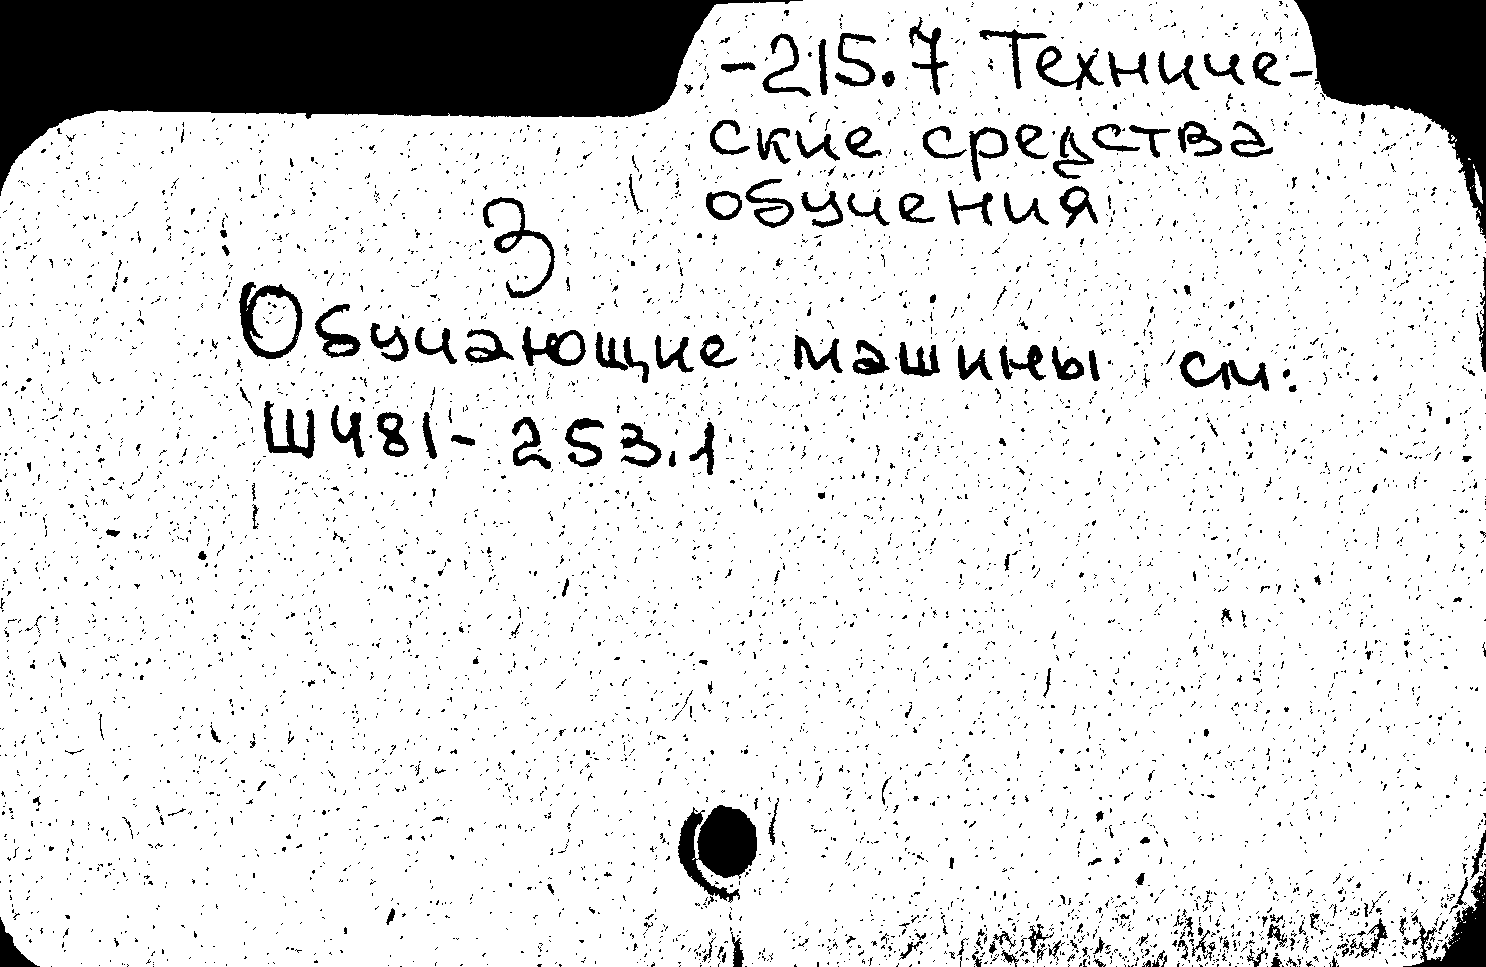 -215.7 Техниче-
ские средства
обучения
З
Обучающие машины см:
Ш481-253.1